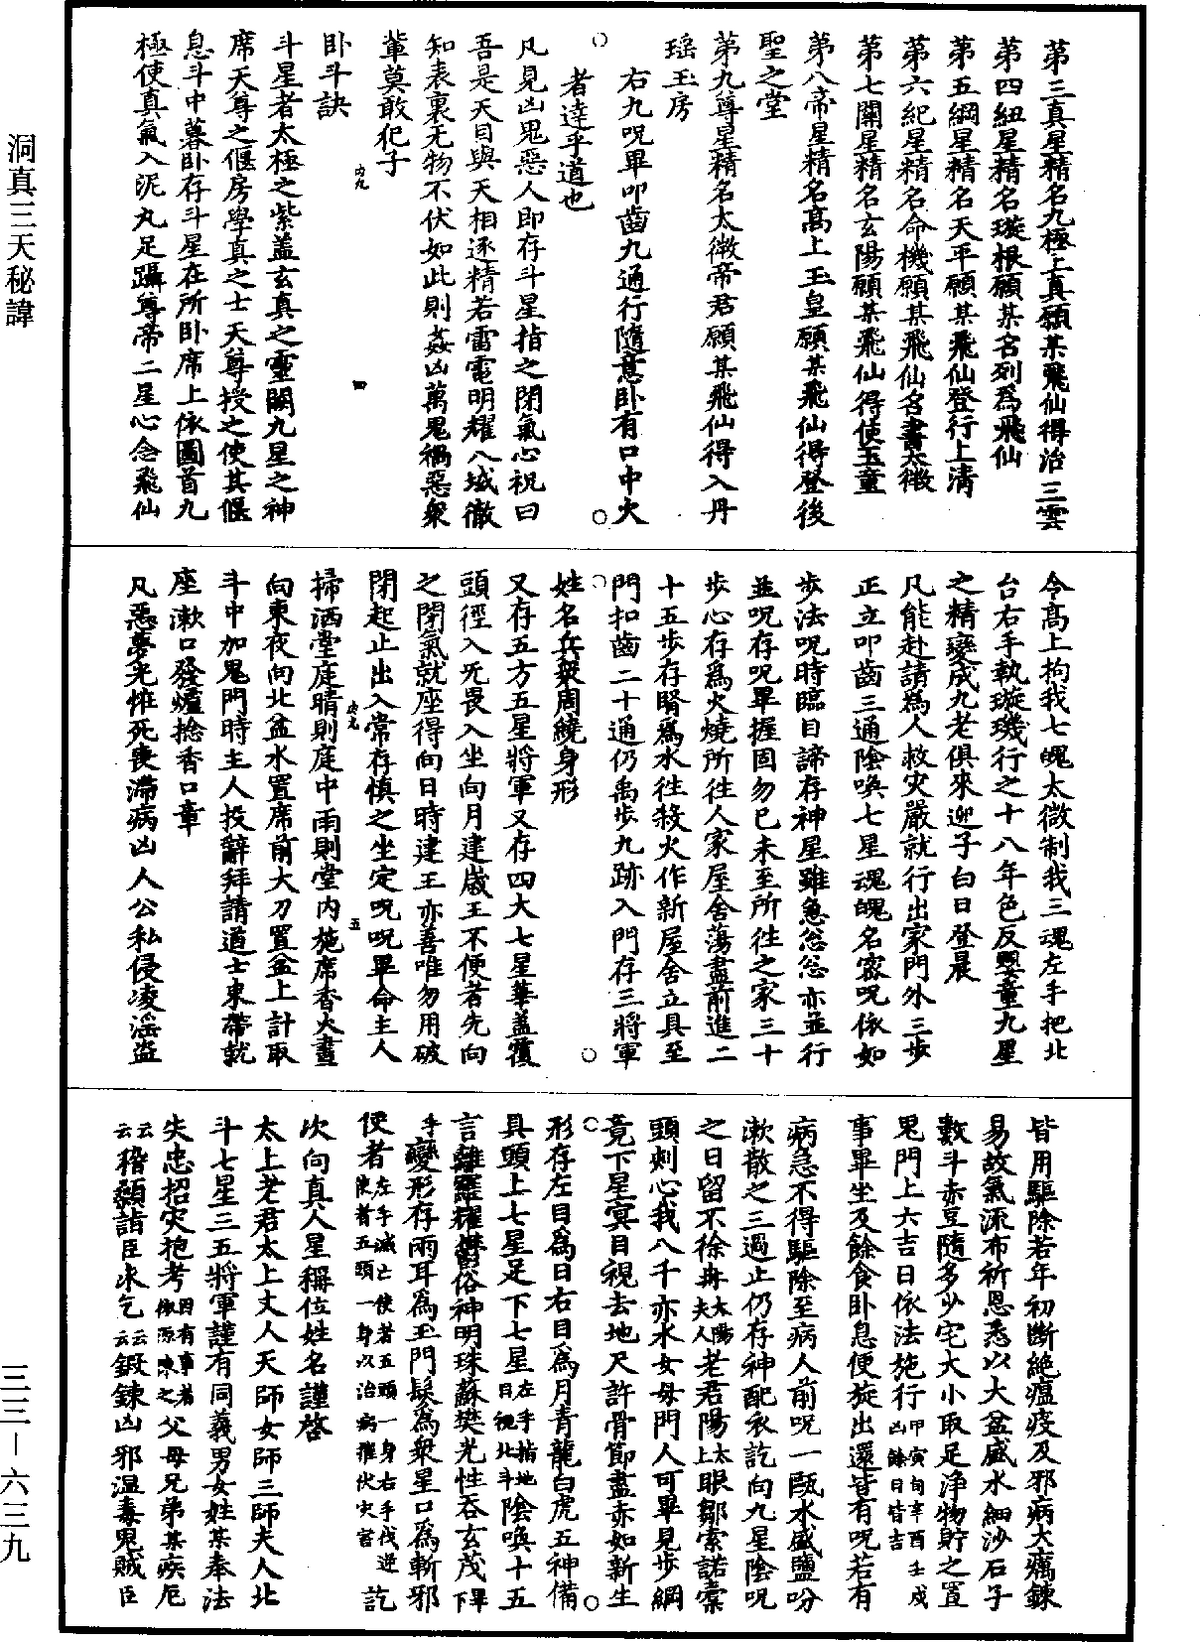 第三真星精名九極上真願某飛仙得治三雲
第四紐星精名璇根願某名列為飛仙
第五綱星精名天平願某飛仙登行上清
第六紀星精名命機願某飛仙名書太微
第七關星精名玄陽願某飛仙得使玉童
第八帝星精名高上玉皇願某飛仙得登後
聖之堂
第九尊星精名太微帝君願某飛仙得入丹
瑶玉房
右九呪畢叩齒九通行隨意卧有口中火
者達乎道也
凡見凶鬼惡人即存斗星指之閉氣心祝曰
吾是天目與天相逐精若雷電明耀八域徹
知表裏无物不伏如此則姦凶萬鬼禍惡衆
輩莫敢犯子
内九 四
卧斗訣
斗星者太極之紫蓋玄真之靈關九星之神
席天尊之偃房學真之士天尊授之使其偃
息斗中暮卧存斗星在所卧席上依圖首九
極使真氣入泥丸足躡尊帝二星心念飛仙
今高上拘我七魄太微制我三魂左手把北
台右手執璇璣行之十八年色反嬰童九星
之精變成九老俱來迎子白日登晨
凡能赴請為人救灾嚴就行出家門外三步
正立叩齒三通陰喚七星魂魄名密呪依如
步法呪時臨目諦存神星雖急忩忩亦並行
並呪存呪畢握固勿已未至所往之家三十
步心存為火燒所往人家屋舍蕩盡前進二
十五步存腎為水往救火作新屋舍立具至
門扣齒二十通仍禹步九跡入門存三將軍
姓名兵衆周繞身形
又存五方五星將軍又存四大七星華蓋覆
頭徑入旡畏入坐向月建歲王不便者先向
之閉氣就座得向日時建王亦善唯勿用破
閉起止出入常存慎之坐定呪呪畢命主人
内九 五
掃洒堂庭晴則庭中雨則堂内施席香火晝
向東夜向北盆水置席前大刀置盆上計取
斗中加鬼門時主人投辭拜請道士束帶就
座漱口發爐捻香口章
凡惡夢光恠死喪滯病凶人公私侵凌淫盜
皆用驅除若年初斷絶瘟疫及邪病大癘鍊
易故氣源布祈恩悉以大盆盛水細沙石子
數斗赤豆隨多少宅大小取足浄物貯之置
鬼門上六吉日依法施行甲寅旬辛酉壬戌凶餘日皆吉
事畢坐及餘食卧息便旋出還皆有呪若有
病急不得驅除至病人前呪一甌水盛鹽吩
漱散之三過止仍存神配衣訖向九星陰呪
之日留不徐冉太陽夫人老君陽太上眼鄒索諾棠
頭刺心我八千亦水女毋門人可畢見步綱
竟下星㝠目視去地尺許骨節盡赤如新生
形存左目為日右目為月青龍白虎五神備
具頭上七星足下七星左手指地目視北斗陰喚十五
手變形存兩耳為玉門髮為衆星口為斬邪
使者左手滅亡使者五頭一身右手伐逆使者五頭一身以治病摧伏灾害訖
次向真人星稱位姓名謹啓
太上老君太上丈人天師女師三師夫人北
斗七星三五將軍謹有同義男女姓某奉法
失忠招灾抱考因有事者依源柬之父母兄弟某疾厄
云云稽顙詣臣求乞云云鍛鍊凶邪温毒鬼賊臣
洞真三天秘諱
三三－六三九